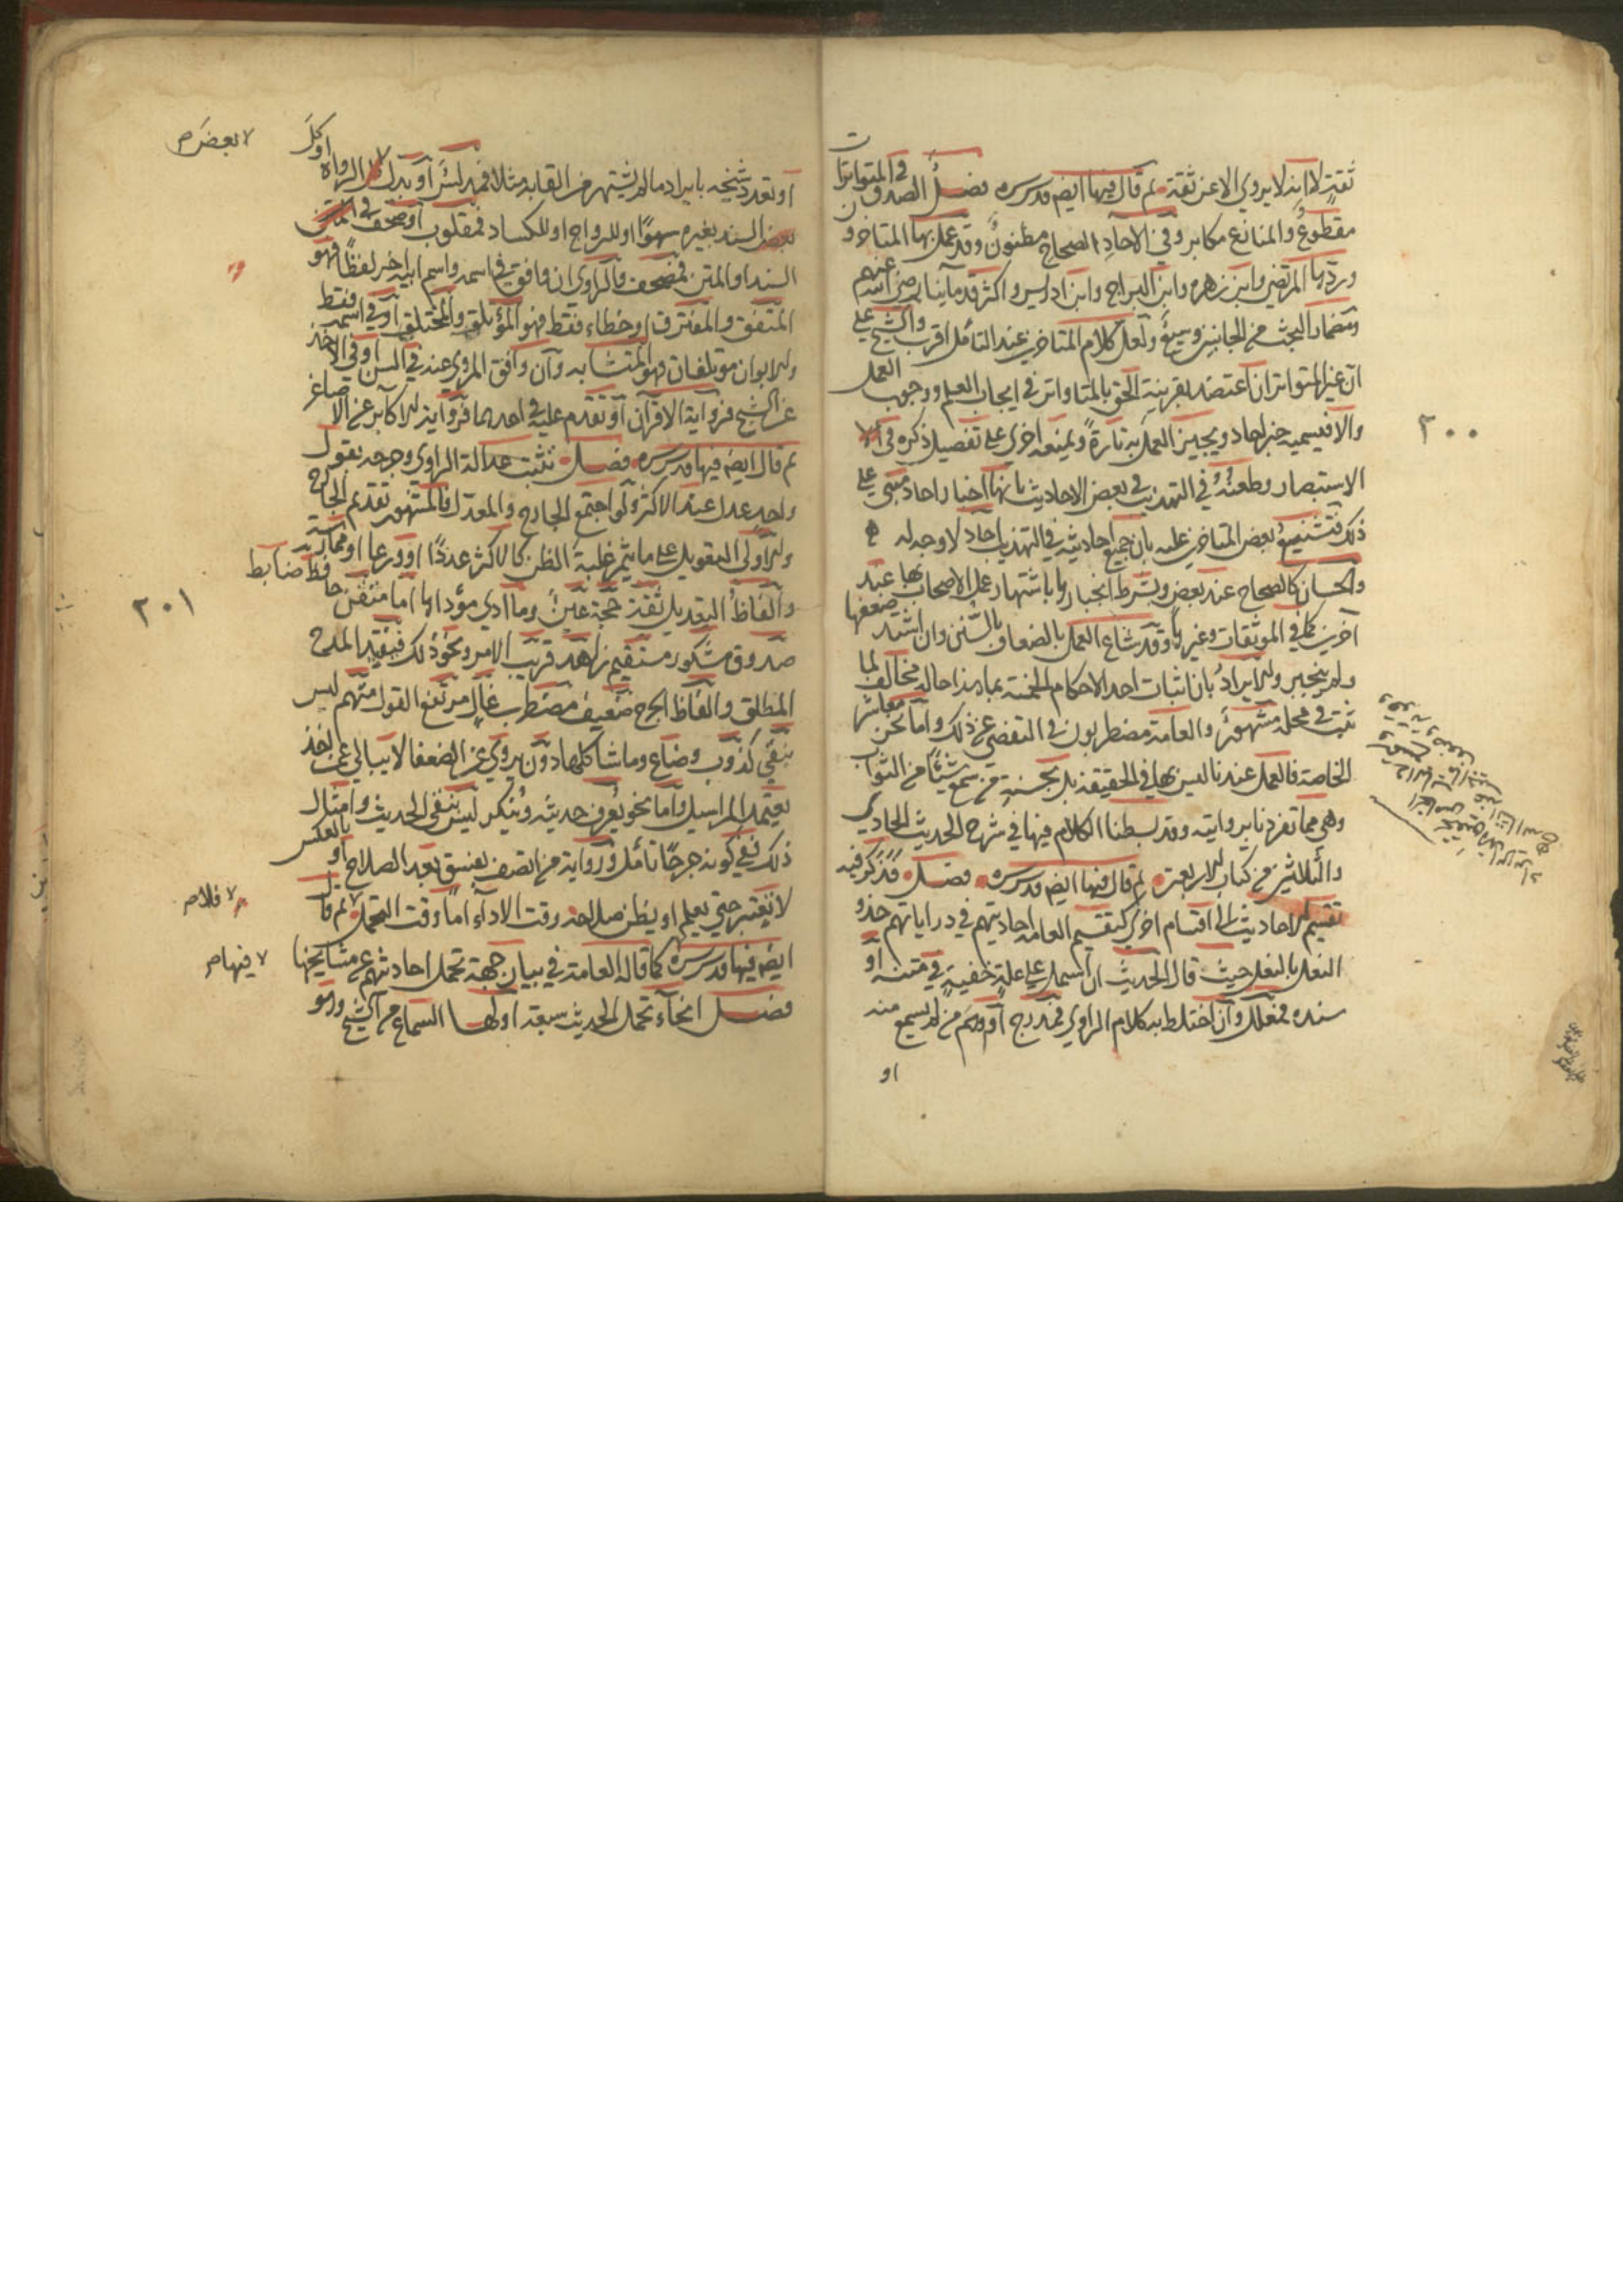 ثقة لا انه لا يروي الا عن ثقة ثم قال فيها ايض قدس سره فصل الصدق في المتواترات
مقطوع والمنازع مكابر وفي الآحاد الصحاح مظنون وقد عمل بها المتاخرون
وردها المرتضى وابن زهره وابن البراج وابن ادريس واكثر قدمائنا رضى الله عنهم
ومضمار البحث من الجانبين وسيع ولعل كلام المتاخرين عند التأمل اقرب والشيخ على
ان غير المتواتر ان اعتضد بقرينة الحق بالمتواتر في ايجاب العلم ووجوب العمل
والا فيسميه خبر احاد ويجيز العمل به تارة ويمنعه اخرى على تفصيل ذكره في
٢٠٠
الاستبصار وطعنه في التهذيب في بعض الاحاديث بانها اخبار احاد مبني على
ذلك فتشنيع بعض المتاخرين عليه بان جميع احاديثه في التهذيب احاد لا وجه له
والحسان كالصحاح عند بعض وبشرط انجبارها باشتهار عمل الاصحاب بها عند
آخرين كما في الموثقات وغيرها وقد شاع العمل بالضعاف بالسنن وان اشتد ضعفها
ولم ينجبر والايراد بان اثبات احد الاحكام الخمسة بما هذا حاله مخالف لما
ثبت في محله مشهور والعامة مضطربون في التفصي عن ذلك واما نحن معاشر
الخاصة فالعمل عندنا ليس بها في الحقيقة بل بحسنة من سمع شيئا من الثواب
وهى مما تفردنا بروايته وقد بسطنا الكلام فيها في شرح الحديث الحادي
والثلاثين من كتاب الاربعين ثم قال فيها ايض قدس سره فصل قد ذكر فيه
تقسيم الاحاديث الى اقسام اخرى كتقسيم العامه احاديثهم في دراياتهم حذو
النعل بالنعل حيث قال الحديث ان اشتمل على علة خفية في متنه او
سنده فمعلل وان اختلط به كلام الراوي فمدرج او اوهم من لم يسمع منه
او
او تعدد شيخه بايراد ما لم يشتهر من القابه مثلا فمدلس او بدل الرواه او كل
بعض السند بغيره سهوا او للرواج او للكساد فمقلوب او صحف في
السند او المتن فمصحف والراوي ان وافق في اسمه واسم ابيه اخر لفظا فهو
المتفق والمفترق او خطاء فقط فهو المؤتلف والمختلف او في اسمه فقط
والابوان مؤتلفان فهو المتشابه وان وافق المروي عنه في السن او في الاخذ
عن الشيخ فرواية الاقران او تقدم عليه في احدهما فرواية الاكابر عن الاصاغر
ثم قال ايض فيها قدس سره فصل تثبت عدالة الراوي وجرحه بقول
واحد عدل عند الاكثر ولو اجتمع الجارح والمعدل فالمشهور تقديم الجارح
والاولى التعويل على ما يثمر غلبة الظن كالاكثر عددا او ورعا او ممارسة
والفاظ التعديل ثقة حجة عين وما ادى مؤداها اما متقن حافظ ضابط
٢٠١
صدوق مشكور مستقيم زاهد قريب الامر ونحو ذلك فيفيد المدح
المطلق والفاظ الجرح ضعيف مضطرب غال مرتفع القول متهم ليس
بنقي كذوب وضاع وما شاكلها دون يروي عن الضعفا لا يبالي عمن اخذ
يعتمد المراسيل واما نحو يعرف حديثه وينكر ليس بنقى الحديث وامثال
ذلك ففي كونه جرحا تامل ورواية من اتصف بفسق بعد الصلاح او بالعكس
لا تعتبر حتى يعلم او يظن صلاحه وقت الاداء اما وقت التحمل فلا ثم قال
ايض فيها قدس سره كما قاله العامة في بيان جهة تحمل احاديثهم عن مشايخها
فصل انحاء تحمل الحديث سبعة اولها السماع من الشيخ وهو